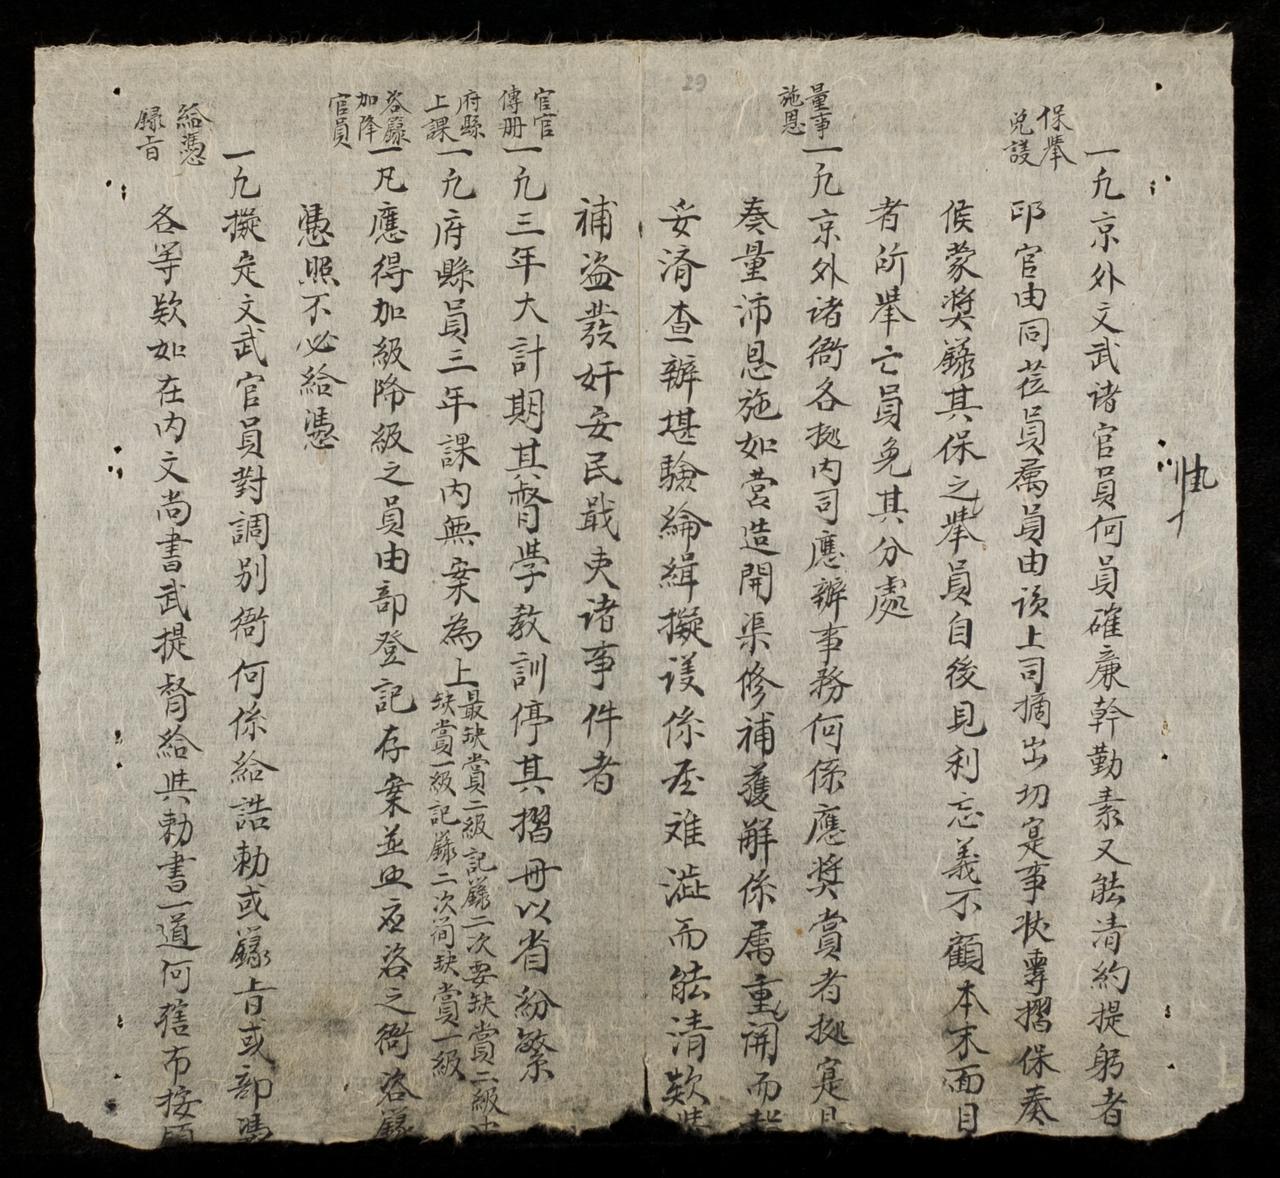 保舉
免議
一凢京外文武诸官員何員確廉幹勤素又能清約提躬者
印官由同莅員属員由该上司摘出切寔事状專摺保奏
候蒙奬錄其保之舉員自後見利忘義不顧本末面目
者所舉亡員免其分處
量事
施恩
一凢京外诸衙各拠内司應辦事務何係應奬賞者拠寔具
奏量沛恩施如营造開渠修補獲解係属重開而
妥済查辦堪驗綸緝擬议係歪难澁而能清欵
補盗發奸安民戢吏诸事件者
官官
傳冊
一凢三年大計期其督學教訓停其摺冊以省紛繁
府縣
上課
一凢府縣員三年課内無案為上最缺賞二級記錄二次要缺賞二級中缺賞一級記錄二次簡缺賞一級
咨錄
加降
官員
一凡應得加級降級之員由部登記存案並出在咨之衙咨錄
憑照不必給憑
給憑
錄旨
一凢擬定文武官員對調别衙何係給誥勅或錄旨或部憑
各等欵如在内文尚書武提督給與勅書一道何